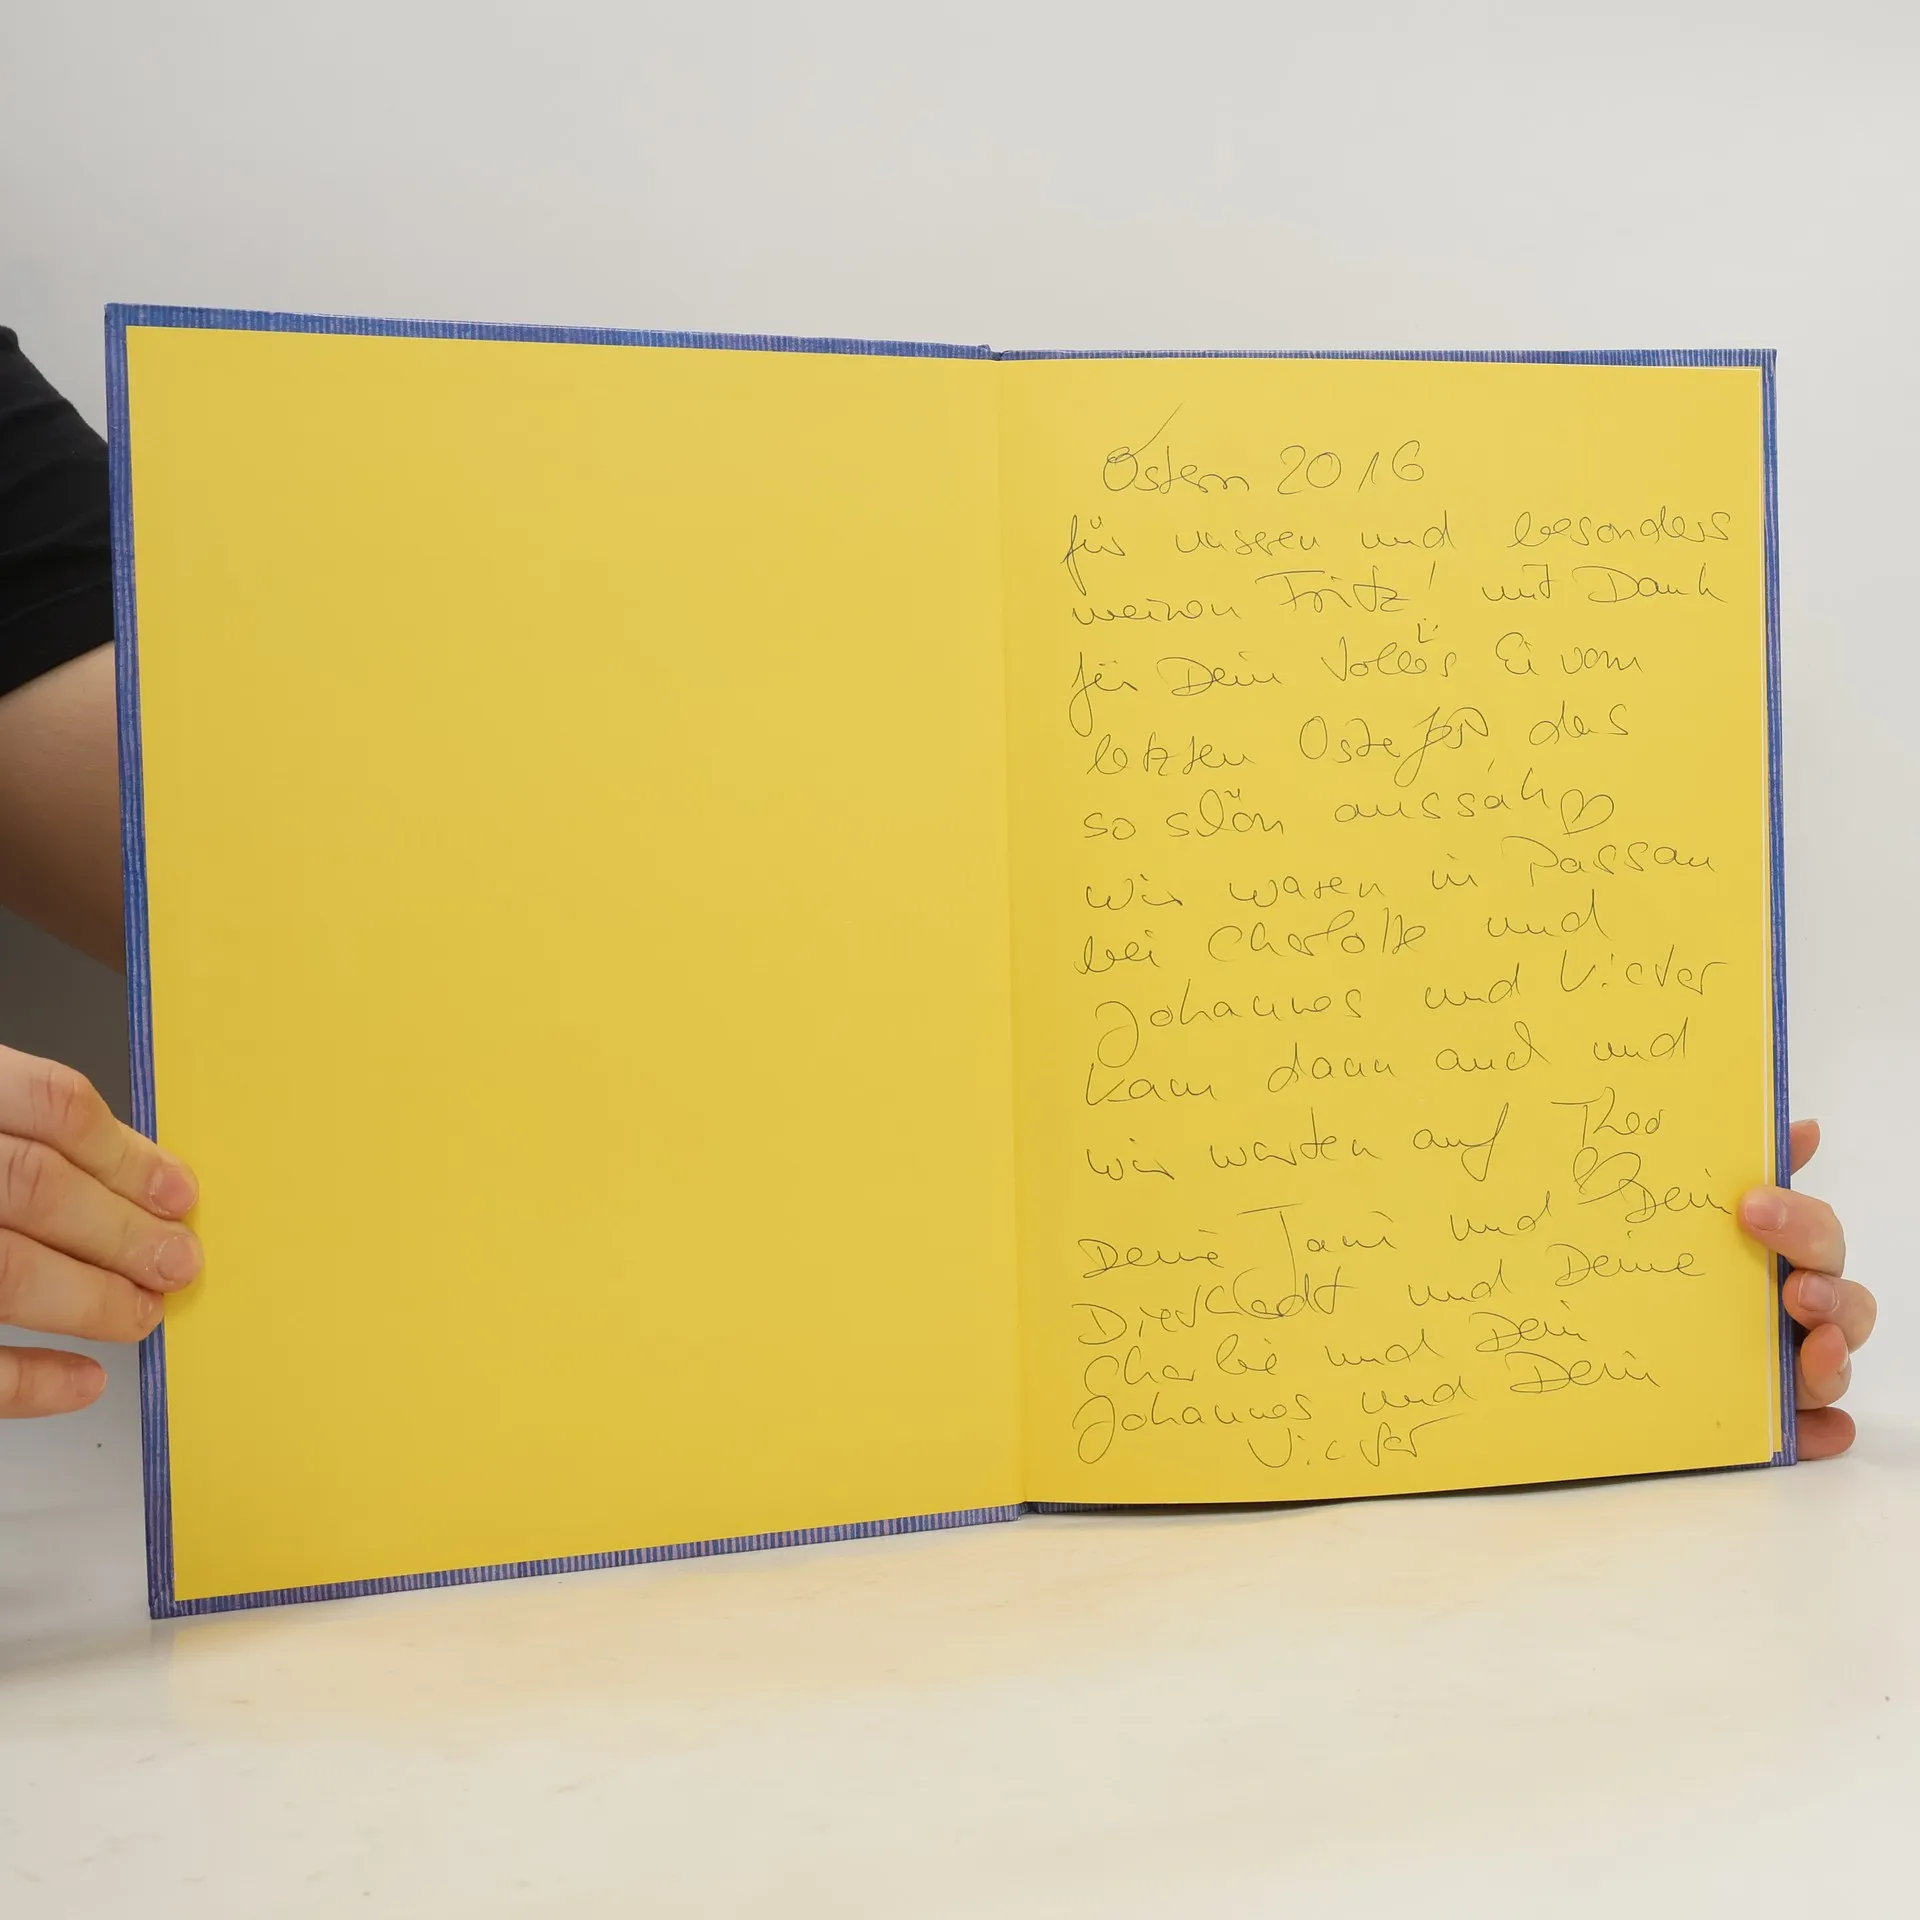 Ostern 2016
für unseren und besonders
meinen Fritz! mit Dank
für Dein tolles Ei vom
letzten Osterfest, das
so schön aussah
wir waren in Passau
bei Charlotte und
Johannes und Victor
kam dann auch und
wir warten auf Theo
Deine Tani und Dein
und Deine
Charlie und Dein
Johannes und Dein
Victor